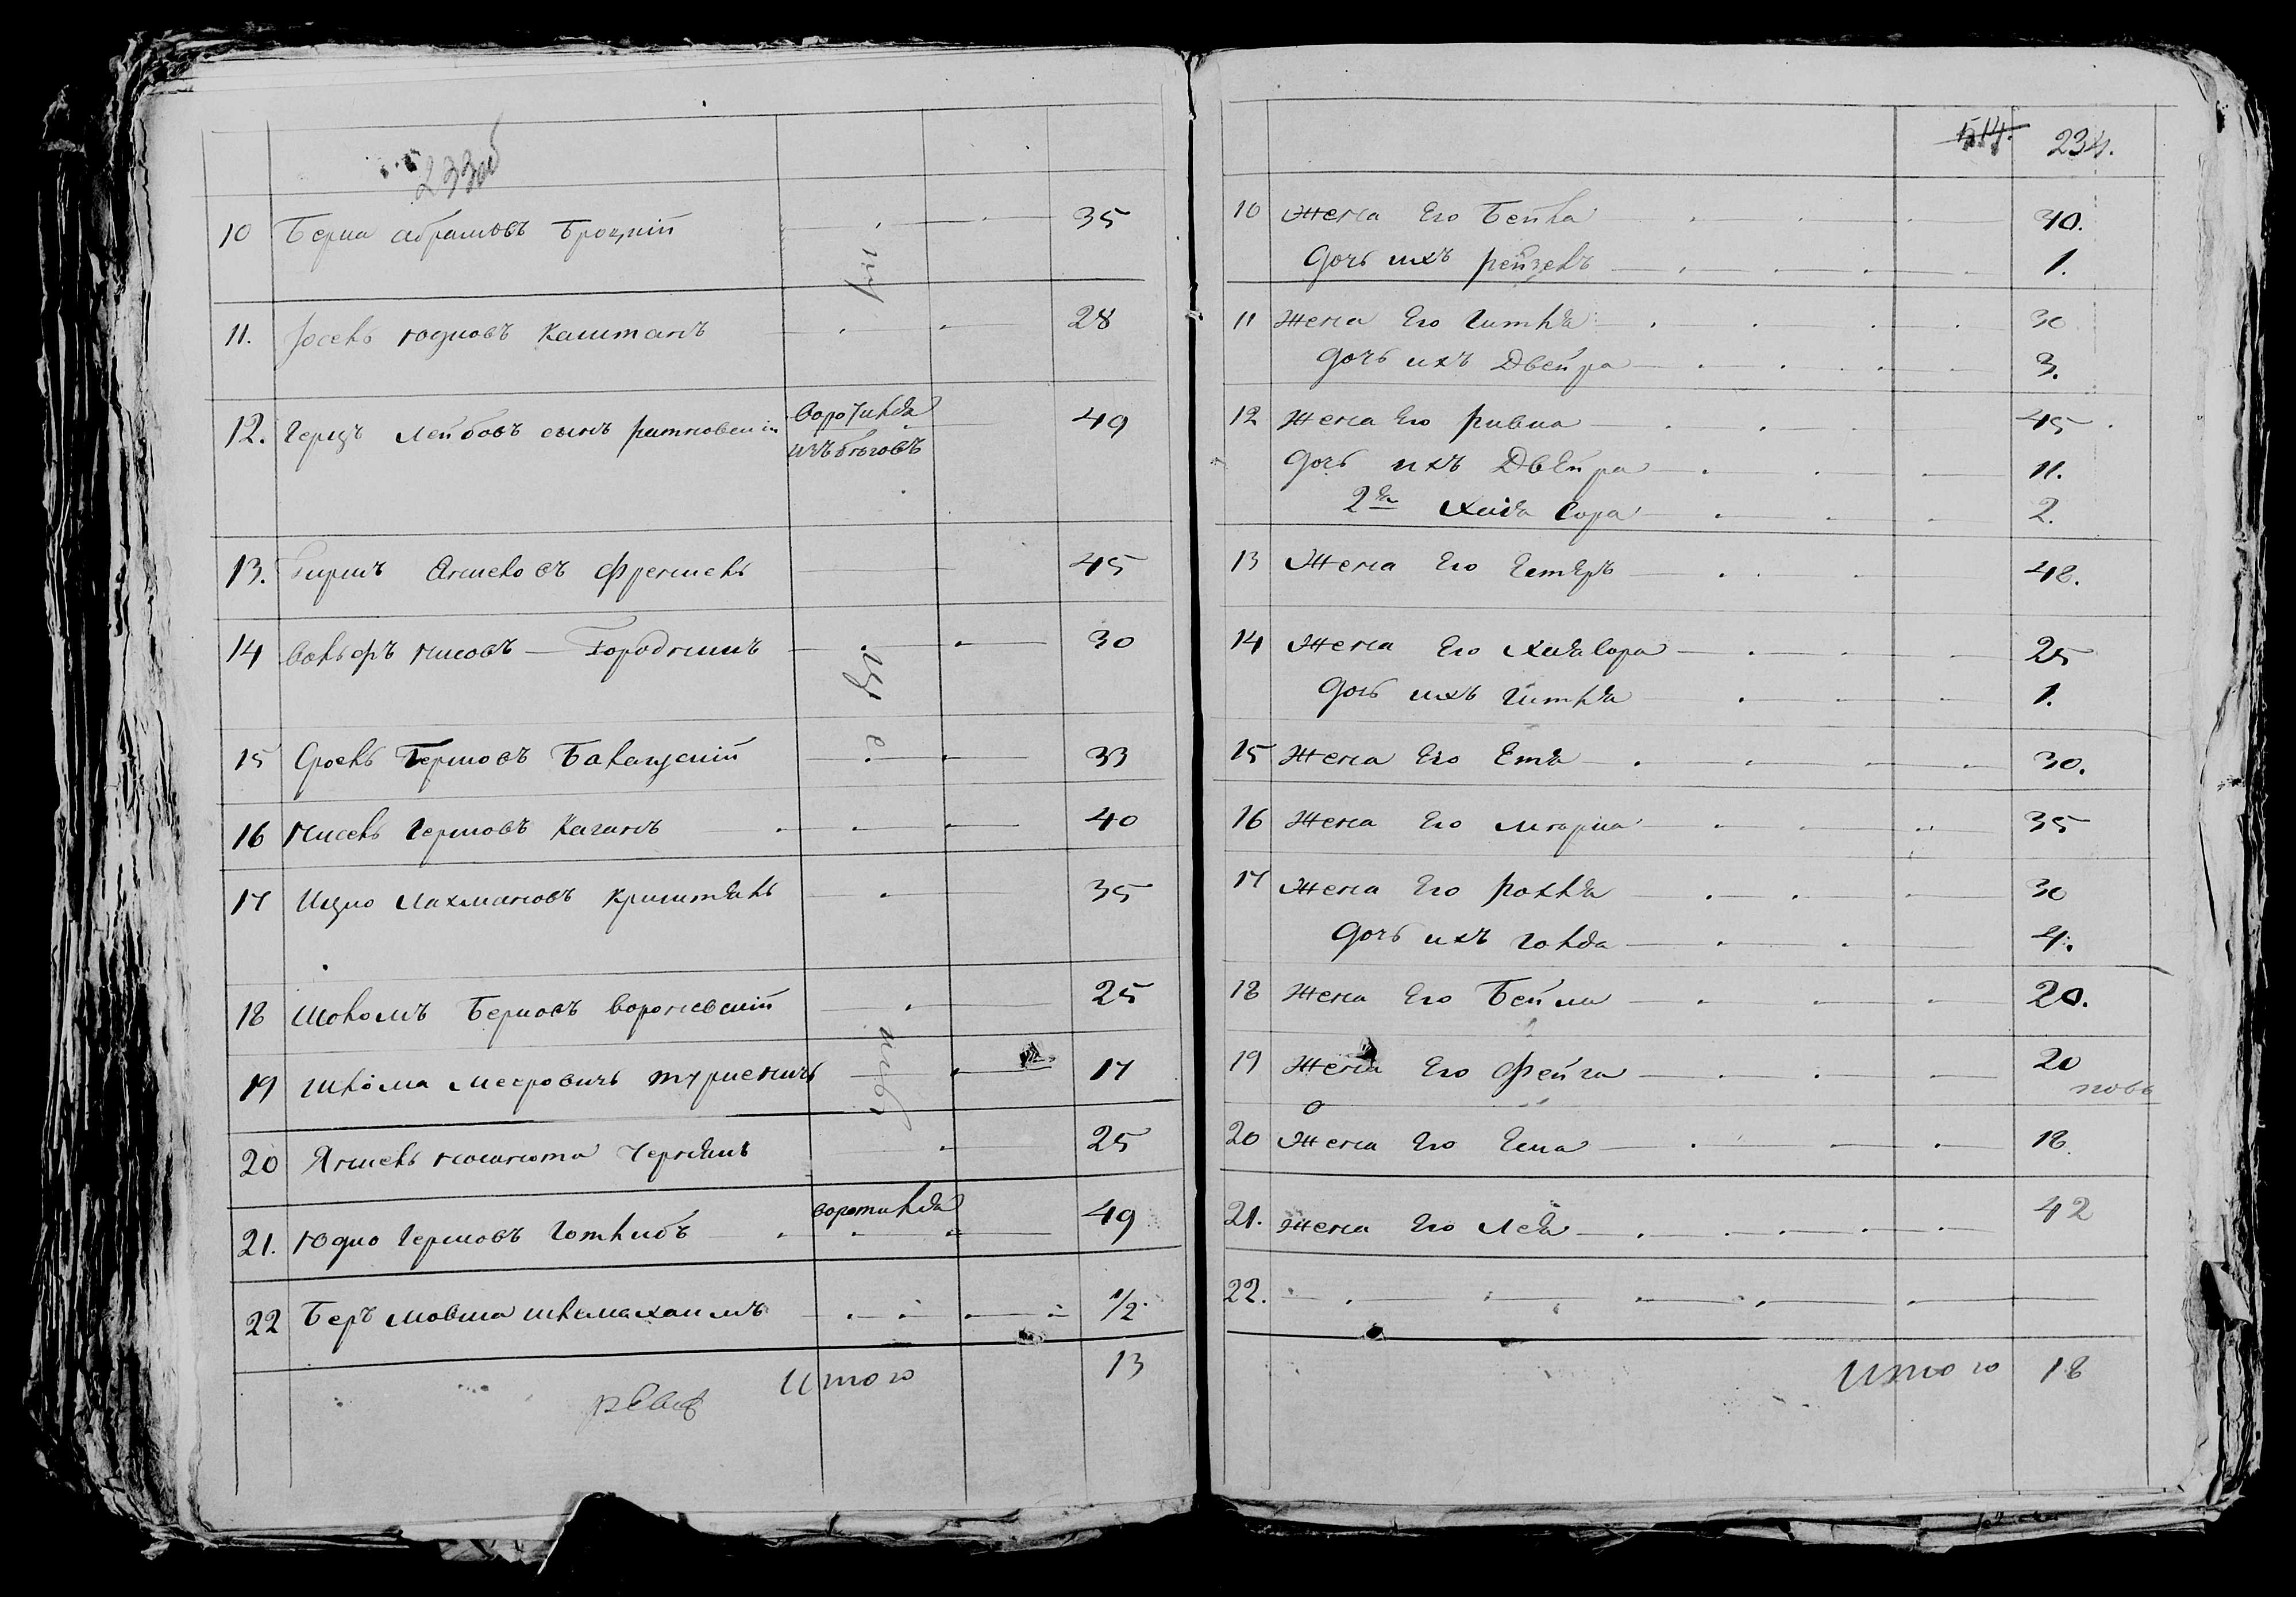 233об
10 Берка Абрамовъ Броцкій 35
11. Іосель Юдковъ Каштанъ 28
12. Герцъ Лейбовъ сынъ Ратновскій воротился 49
изъ бѣговъ
13. Гиршъ Янкелевъ Френкель 45
14 Вольфъ 30
15 Сроель Берковъ 33
16 Нисель Гершовъ Каганъ 40
17 Ицко Нахмановъ Криштель 35
18 Шоломъ Берковъ Вороневскій 25
19 Шлёма Мееровичъ 17
20 Янкель 25
21. Юдко Гершовъ Готлибъ воротился 49
22 Беръ Мовша Шлема Хаимъ 1/2
Итого 13
514. 234.
10 Жена Его Бейла 30.
Дочь ихъ Рейзель 1.
11 Жена Его Гитля 30
Дочь ихъ Двейра 3.
12 Жена Его Ривка 45
Дочь ихъ Двейра 11.
2я Хая Сора 2.
13 Жена Его Естеръ 48.
14 Жена Его Хая Сора 25
Дочь ихъ Гитля 1.
15 Жена Его Етя 30.
16 Жена Его 35
17 Жена Его Рохля 30
Дочь ихъ Голда 4.
18 Жена Его Бейла 20.
19 Жена Его Фейга 20
20 Жена Его 18.
21. Жена Его Лея 42
22.
Итого 18